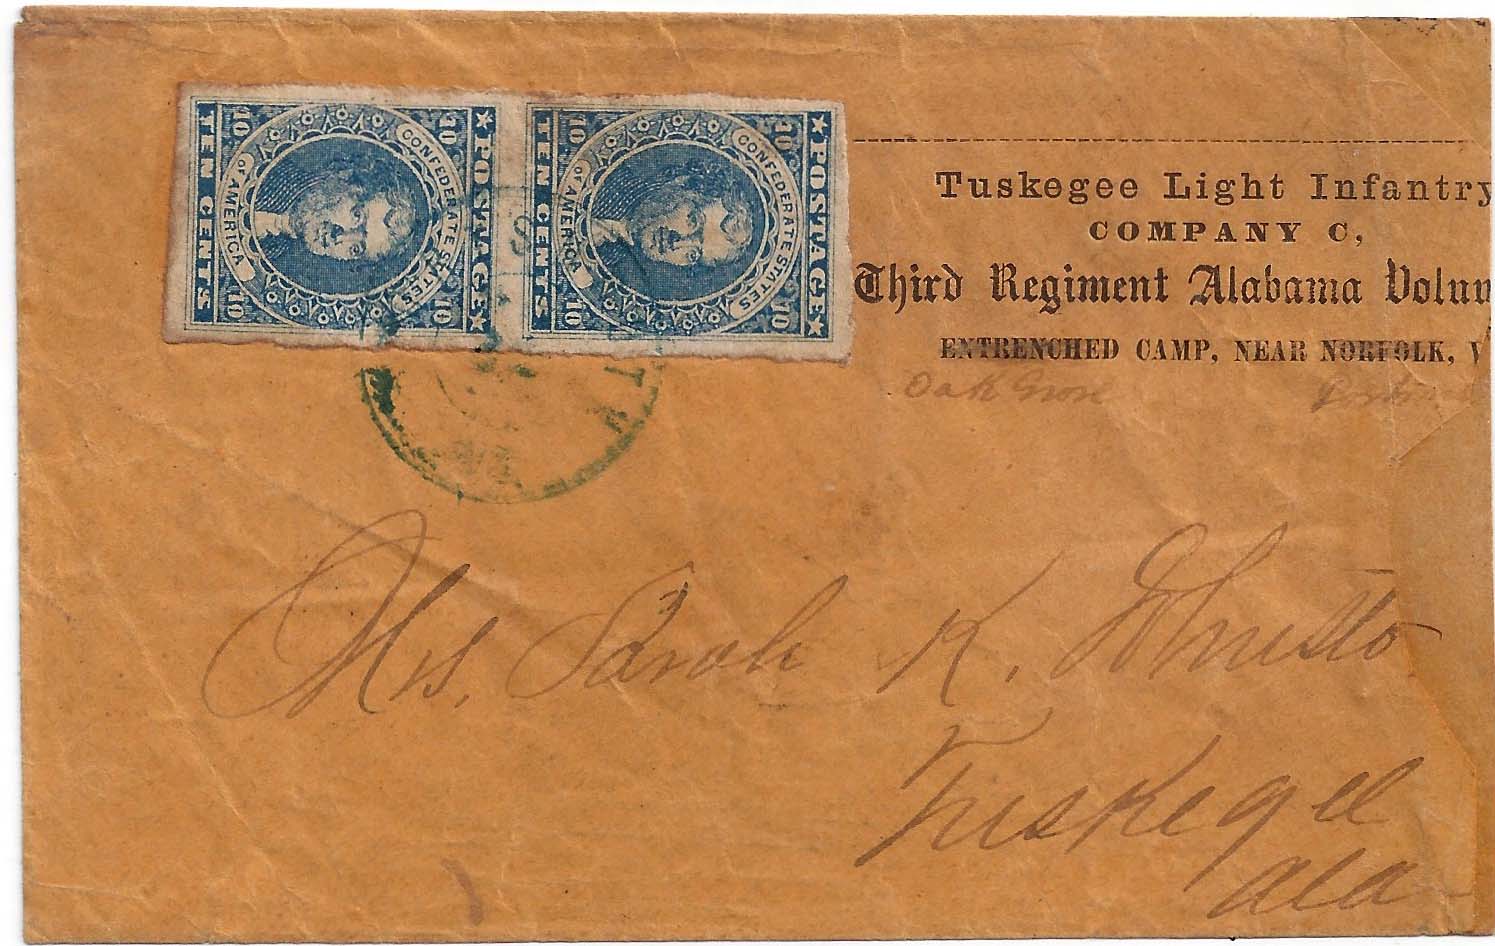 10 10 POSTAGE CONFEDERATE STATES OF AMERICA TEN CENTS 10 10
10 10 POSTAGE CONFEDERATE STATES OF AMERICA TEN CENTS 10 10
Tuskegee Light Infantry
COMPANY C,
Third Regiment Alabama Volun
ENTRENCHED CAMP, NEAR NORFOLK, V
Oak Grove
Mrs. Sarah K.
Tuskegee
Ala